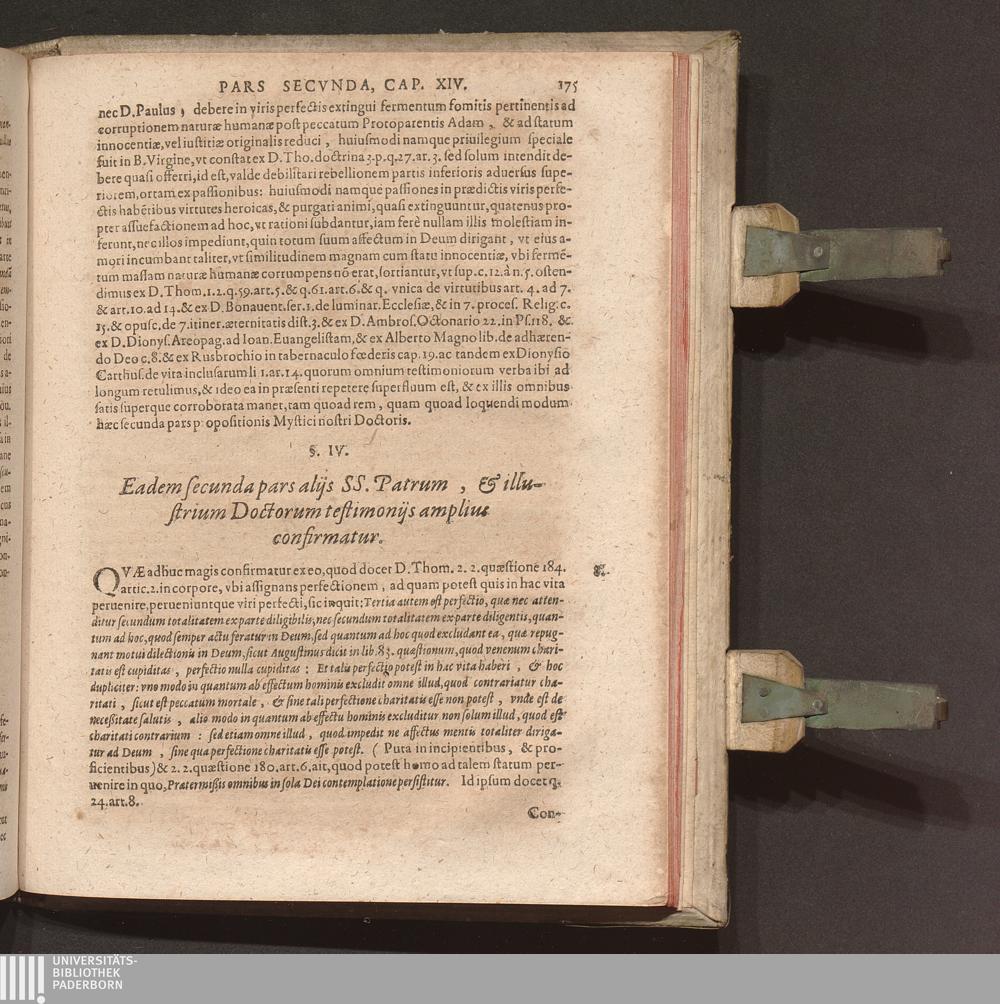 PARS SECVNDA, CAP. XIV. 175
nec D. Paulus, debere in viris perfectis extingui fermentum fomitis pertinentis ad
corruptionem naturæ humanæ post peccatum Protoparentis Adam, & ad statum
innocentiæ, vel iustitiæ originalis reduci, huiusmodi namque priuilegium speciale
fuit in B. Virgine, vt constat ex D. Tho. doctrina 3. p. q. 27. ar. 3. sed solum intendit de-
bere quasi offerri, id est, valde debilitari rebellionem partis inferioris aduersus supe-
riorem, ortam ex passionibus: huiusmodi namque passiones in prædictis viris perfe-
ctis habētibus virtutes heroicas, & purgati animi, quasi extinguuntur, quatenus pro-
pter assuefactionem ad hoc, vt rationi subdantur, iam ferè nullam illis molestiam in-
ferunt, nec illos impediunt, quin totum suum affectum in Deum dirigant, vt eius a-
mori incumbant taliter, vt similitudinem magnam cum statu innocentiæ, vbi fermē-
tum massam naturæ humanæ corrumpens nō erat, sortiantur, vt sup. c. 12. à n. 5. osten-
dimus ex D. Thom. 1. 2. q. 59. art. 5. & q. 61. art. 6. & q. vnica de virtutibus art. 4. ad 7.
& art. 10. ad 14. & ex D. Bonauent. ser. 1. de luminar. Ecclesiæ, & in 7. proces. Relig. c.
15. & opusc. de 7. itiner. æternitatis dist. 3. & ex D. Ambros. Octonario 22. in Ps. 118. &
ex D. Dionys. Areopag. ad Ioan. Euangelistam, & ex Alberto Magno lib. de adhæren-
do Deo c. 8. & ex Rusbrochio in tabernaculo fœderis cap. 19. ac tandem ex Dionysio
Carthus. de vita inclusarum li 1. ar. 14. quorum omnium testimoniorum verba ibi ad
longum retulimus, & ideo ea in præsenti repetere superfluum est, & ex illis omnibus
satis superque corroborata manet, tam quoad rem, quam quoad loquendi modum
hæc secunda pars p opositionis Mystici nostri Doctoris.
§. IV.
Eadem secunda pars alijs SS. Patrum, & illu-
strium Doctorum testimonijs amplius
confirmatur.
QVÆ adhuc magis confirmatur ex eo, quod docet D. Thom. 2. 2. quæstione 184.
artic. 2. in corpore, vbi assignans perfectionem, ad quam potest quis in hac vita
peruenire, perueniuntque viri perfecti, sic inquit: Tertia autem est perfectio, quæ nec atten-
ditur secundum totalitatem ex parte diligibilis, nec secundum totalitatem ex parte diligentis, quan-
tum ad hoc, quod semper actu feratur in Deum, sed quantum ad hoc quod excludant ea, quæ repug-
nant motui dilectionis in Deum, sicut Augustinus dicit in lib. 83. quæstionum, quod venenum chari-
tatis est cupiditas, perfectio nulla cupiditas: Et talis perfectio potest in hac vita haberi, & hoc
dupliciter: vno modo in quantum ab effectum hominis excludit omne illud, quod contrariatur cha-
ritati, sicut est peccatum mortale, & sine tali perfectione charitatis esse non potest, vnde est de
necessitate salutis, alio modo in quantum ab effectu hominis excluditur non solum illud, quod est
charitati contrarium: sed etiam omne illud, quod impedit ne affectus mentis totaliter diriga-
tur ad Deum, sine qua perfectione charitatis esse potest. (Puta in incipientibus, & pro-
ficientibus) & 2. 2. quæstione 180. art. 6. ait, quod potest homo ad talem statum per-
uenire in quo, Prætermissis omnibus in sola Dei contemplatione persistitur. Id ipsum docet q.
24. art. 8.
Con-
UNIVERSITÄTS-
BIBLIOTHEK
PADERBORN